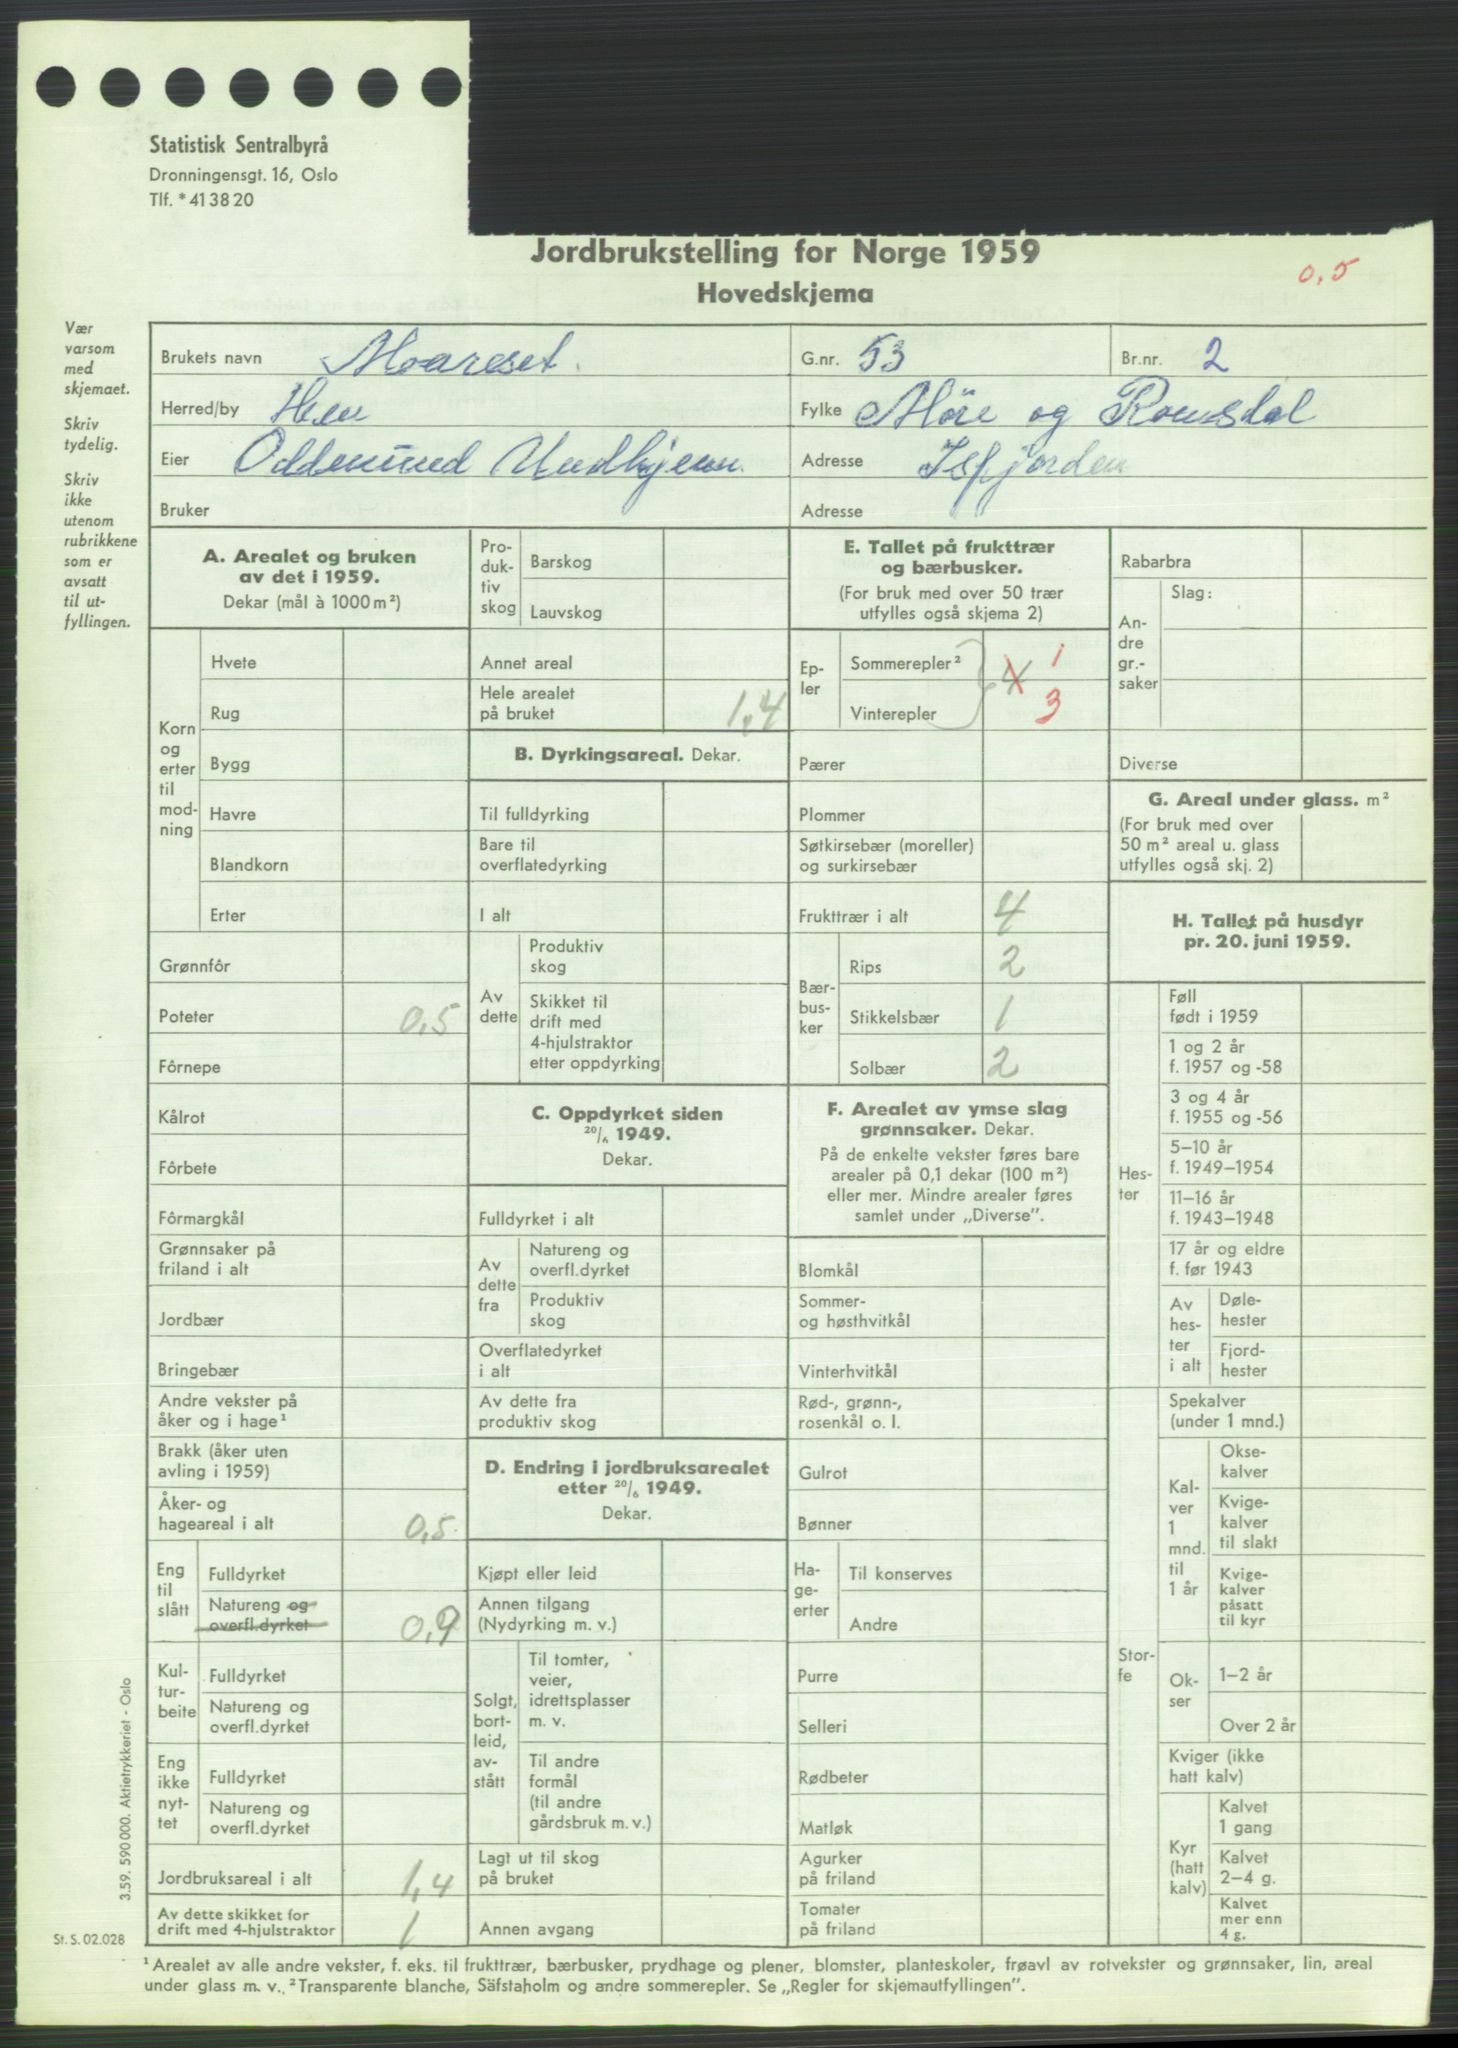 Statistisk Sentralbyrå
Dronningensgt. 16, Oslo
Tlf. * 41 38 20
Jordbrukstelling for Norge 1959
Hovedskjema
0,5
Vær
varsom
med
skjemaet.
Skriv
tydelig.
Skriv
ikke
utenom
rubrikkene
som er
avsatt
til ut-
fyllingen.
Brukets navn Moareset. G.nr. 53 Br.nr. 2
Herred/by Hen Fylke Møre og Romsdal
Eier Oddmund Undhjem Adresse Isfjorden
Bruker Adresse
A. Arealet og bruken
av det i 1959.
Dekar (mål à 1000 m²)
Korn
og
erter
til
mod-
ning
Hvete
Rug
Bygg
Havre
Blandkorn
Erter
Grønnfôr
Poteter 0,5
Fôrnepe
Kålrot
Fôrbete
Fôrmargkål
Grønnsaker på
friland i alt
Jordbær
Bringebær
Andre vekster på
åker og i hage¹
Brakk (åker uten
avling i 1959)
Åker- og
hageareal i alt 0,5
Eng
til
slått
Fulldyrket
Natureng og
overfl.dyrket 0,9
Kul-
tur-
beite
Fulldyrket
Natureng og
overfl.dyrket
Eng
ikke
nyt-
tet
Fulldyrket
Natureng og
overfl.dyrket
Jordbruksareal i alt 1,4
Av dette skikket for
drift med 4-hjulstraktor 1
Pro-
duk-
tiv
skog
Barskog
Lauvskog
Annet areal
Hele arealet
på bruket 1,4
B. Dyrkingsareal. Dekar.
Til fulldyrking
Bare til
overflatedyrking
I alt
Av
dette
Produktiv
skog
Skikket til
drift med
4-hjulstraktor
etter oppdyrking
C. Oppdyrket siden
20/6 1949.
Dekar.
Fulldyrket i alt
Av
dette
fra
Natureng og
overfl.dyrket
Produktiv
skog
Overflatedyrket
i alt
Av dette fra
produktiv skog
D. Endring i jordbruksarealet
etter 20/6 1949.
Dekar.
Kjøpt eller leid
Annen tilgang
(Nydyrking m. v.)
Solgt,
bort-
leid,
av-
stått
Til tomter,
veier,
idrettsplasser
m. v.
Til andre
formål
(til andre
gårdsbruk m. v.)
Lagt ut til skog
på bruket
Annen avgang
E. Tallet på frukttrær
og bærbusker.
(For bruk med over 50 trær
utfylles også skjema 2)
Ep-
ler
Sommerepler² 4 1
Vinterepler 3
Pærer
Plommer
Søtkirsebær (moreller)
og surkirsebær
Frukttrær i alt 4
Bær-
bus-
ker
Rips 2
Stikkelsbær 1
Solbær 2
F. Arealet av ymse slag
grønnsaker. Dekar.
På de enkelte vekster føres bare
arealer på 0,1 dekar (100 m²)
eller mer. Mindre arealer føres
samlet under „Diverse”.
Blomkål
Sommer-
og høsthvitkål
Vinterhvitkål
Rød-, grønn-,
rosenkål o. l.
Gulrot
Bønner
Ha-
ge-
erter
Til konserves
Andre
Purre
Selleri
Rødbeter
Matløk
Agurker
på friland
Tomater
på friland
Rabarbra
An-
dre
gr.-
saker
Slag:
Diverse
G. Areal under glass. m²
(For bruk med over
50 m² areal u. glass
utfylles også skj. 2)
H. Tallet på husdyr
pr. 20. juni 1959.
Hes-
ter
Føll
født i 1959
1 og 2 år
f. 1957 og -58
3 og 4 år
f. 1955 og -56
5–10 år
f. 1949–1954
11–16 år
f. 1943–1948
17 år og eldre
f. før 1943
Av
hes-
ter
i alt
Døle-
hester
Fjord-
hester
Stor-
fe
Spekalver
(under 1 mnd.)
Kal-
ver
1
mnd.
til
1 år
Okse-
kalver
Kvige-
kalver
til slakt
Kvige-
kalver
påsatt
til kyr
Ok-
ser
1–2 år
Over 2 år
Kviger (ikke
hatt kalv)
Kyr
(hatt
kalv)
Kalvet
1 gang
Kalvet
2–4 g.
Kalvet
mer enn
4 g.
3.59. 590 000. Aktietrykkeriet - Oslo
St. S. 02.028
¹ Arealet av alle andre vekster, f. eks. til frukttrær, bærbusker, prydhage og plener, blomster, planteskoler, frøavl av rotvekster og grønnsaker, lin, areal
under glass m. v. ² Transparente blanche, Säfstaholm og andre sommerepler. Se „Regler for skjemautfyllingen”.